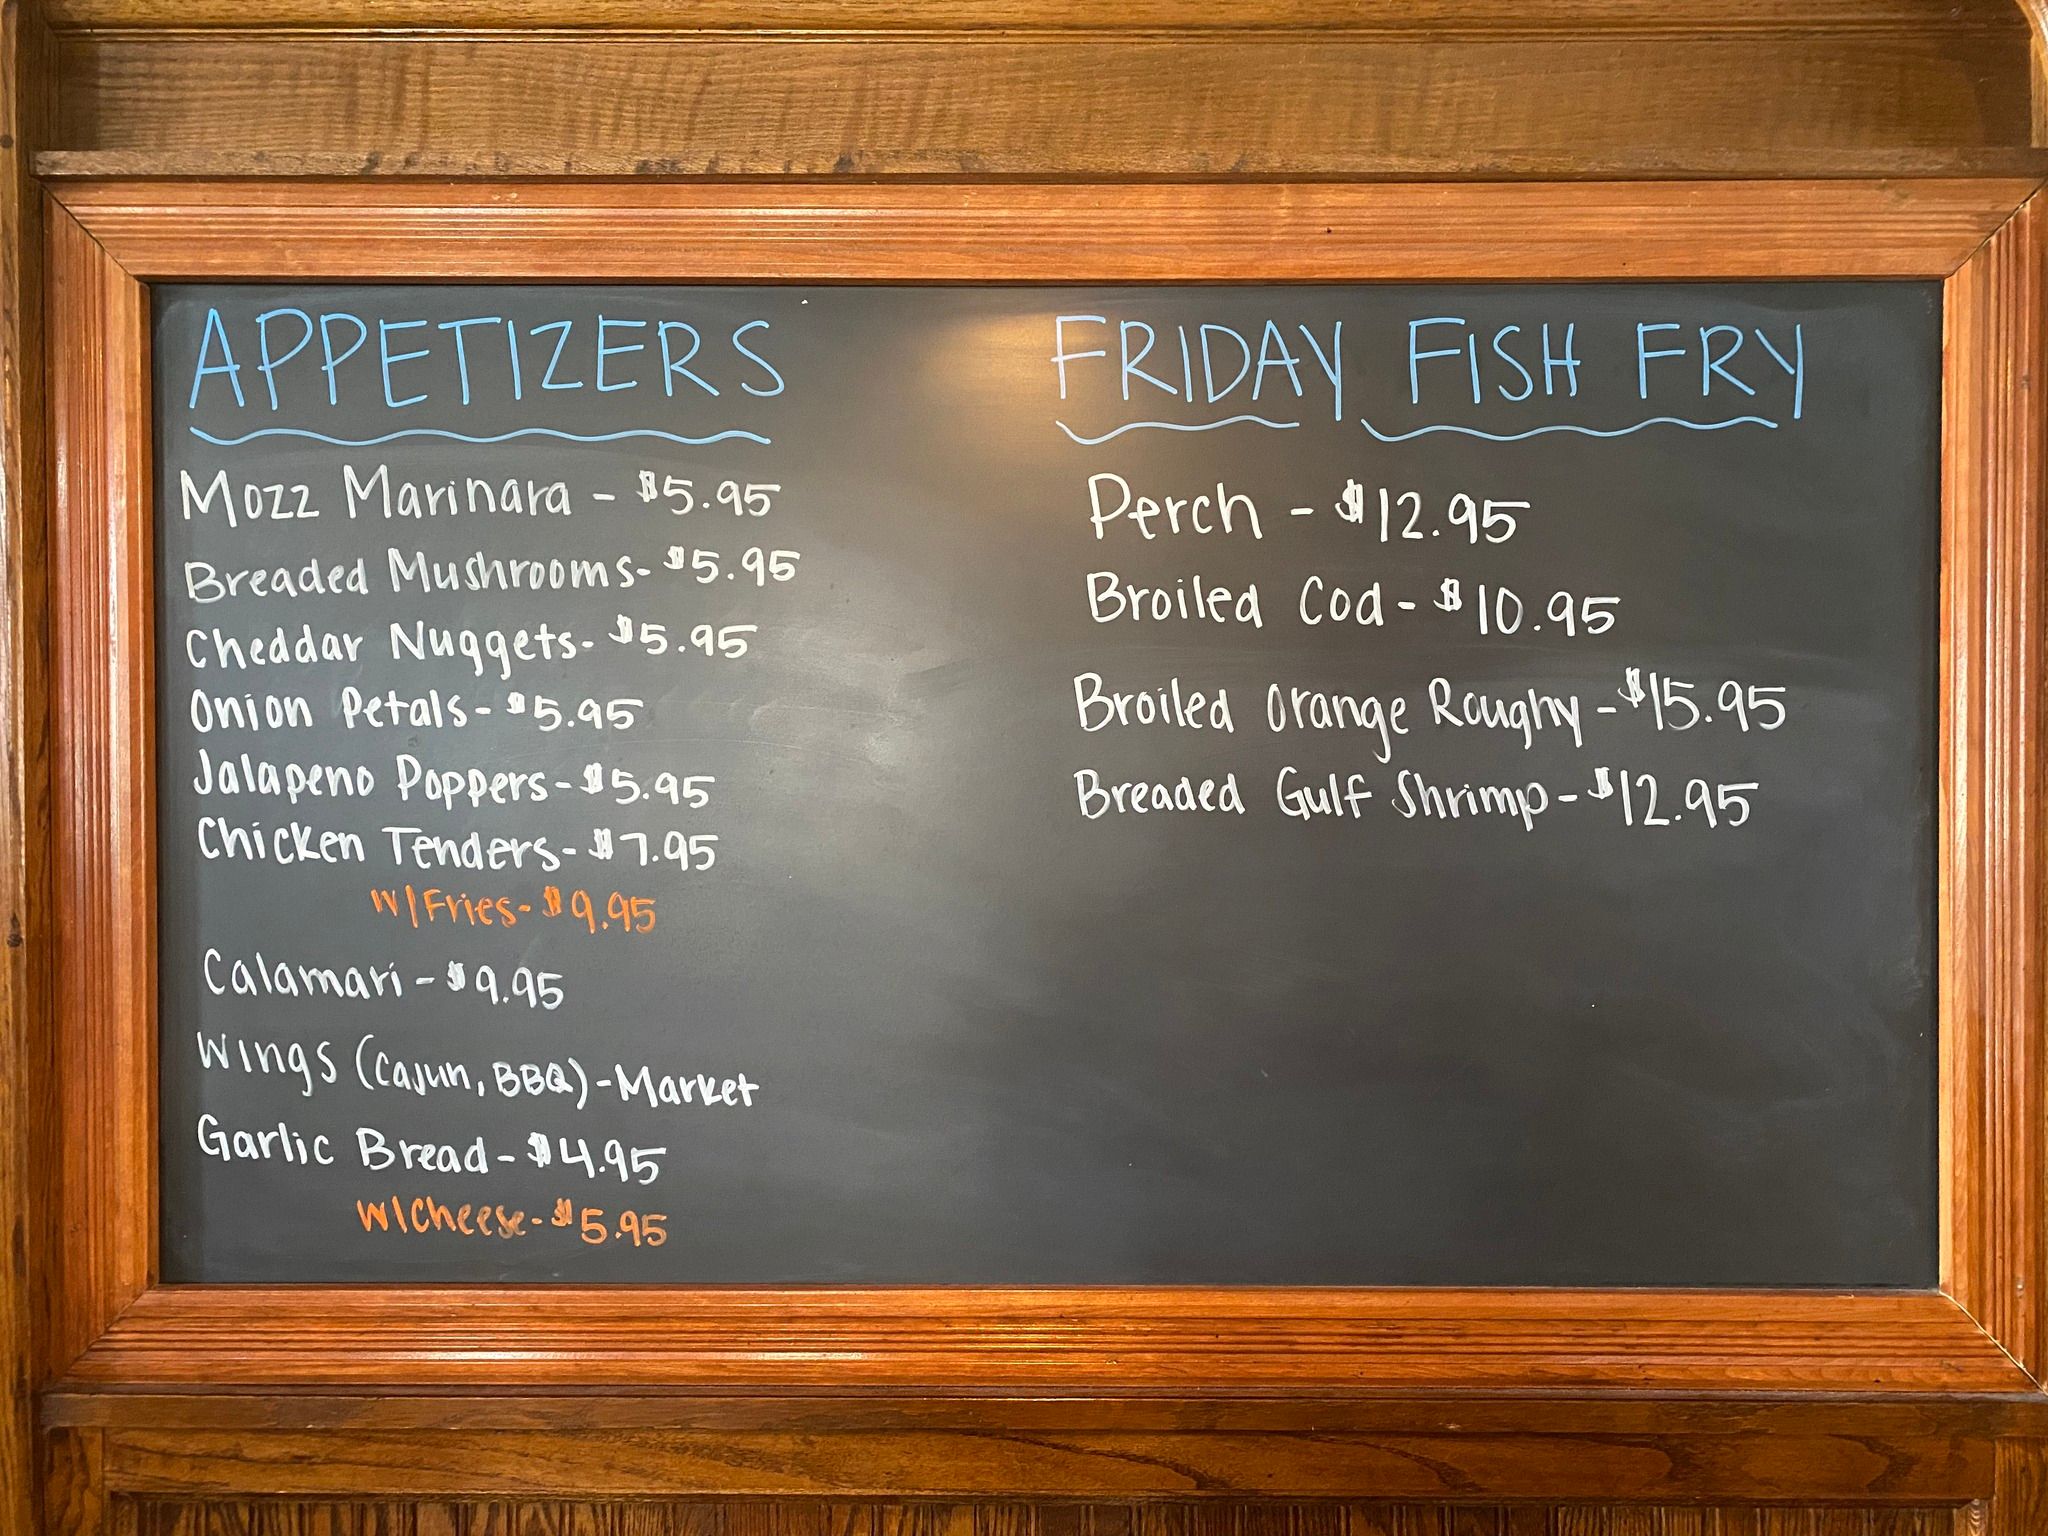 APPETIZERS
Mozz Marinara - $5.95
Breaded Mushrooms- $5.95
Cheddar Nuggets- $5.95
Onion Petals- $5.95
Jalapeno Poppers- $5.95
Chicken Tenders- $7.95
w/Fries- $9.95
Calamari - $9.95
Wings (Cajun, BBQ) - Market
Garlic Bread - $4.95
w/Cheese- $5.95
FRIDAY FISH FRY
Perch - $12.95
Broiled Cod - $10.95
Broiled Orange Roughy - $15.95
Breaded Gulf Shrimp - $12.95